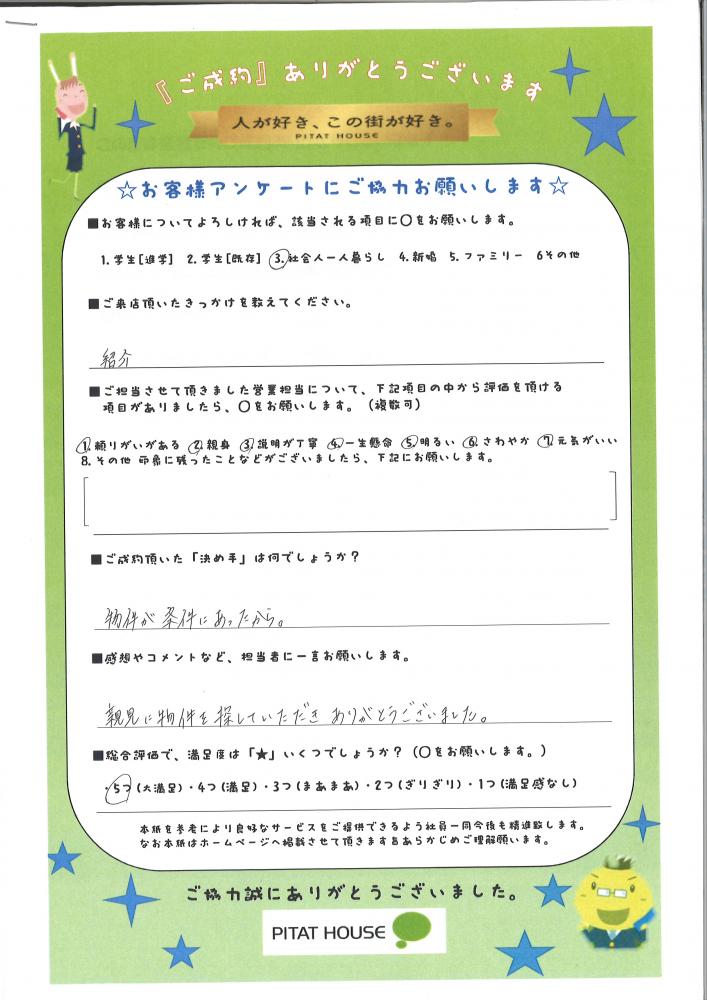 『ご成約』ありがとうございます
人が好き、この街が好き。
PITAT HOUSE
☆お客様アンケートにご協力お願いします☆
■お客様についてよろしければ、該当される項目に〇をお願いします。
1.学生[進学] 2.学生[既存] 3.社会人一人暮らし 4.新婚 5.ファミリー 6その他
■ご来店頂いたきっかけを教えてください。
紹介
■ご担当させて頂きました営業担当について、下記項目の中から評価を頂ける
項目がありましたら、〇をお願いします。（複数可）
1.頼りがいがある 2.親身 3.説明が丁寧 4.一生懸命 5.明るい 6.さわやか 7.元気がいい
8.その他 印象に残ったことなどがございましたら、下記にお願いします。
■ご成約頂いた「決め手」は何でしょうか？
物件が条件にあったから。
■感想やコメントなど、担当者に一言お願いします。
親見に物件を探していただきありがとうございました。
■総合評価で、満足度は「★」いくつでしょうか？（〇をお願いします。）
・5つ(大満足)・4つ(満足)・3つ(まあまあ)・2つ(ぎりぎり)・1つ(満足感なし)
本紙を参考により良好なサービスをご提供できるよう社員一同今後も精進致します。
なお本紙はホームページへ掲載させて頂きます旨あらかじめご理解願います。
ご協力誠にありがとうございました。
PITAT HOUSE